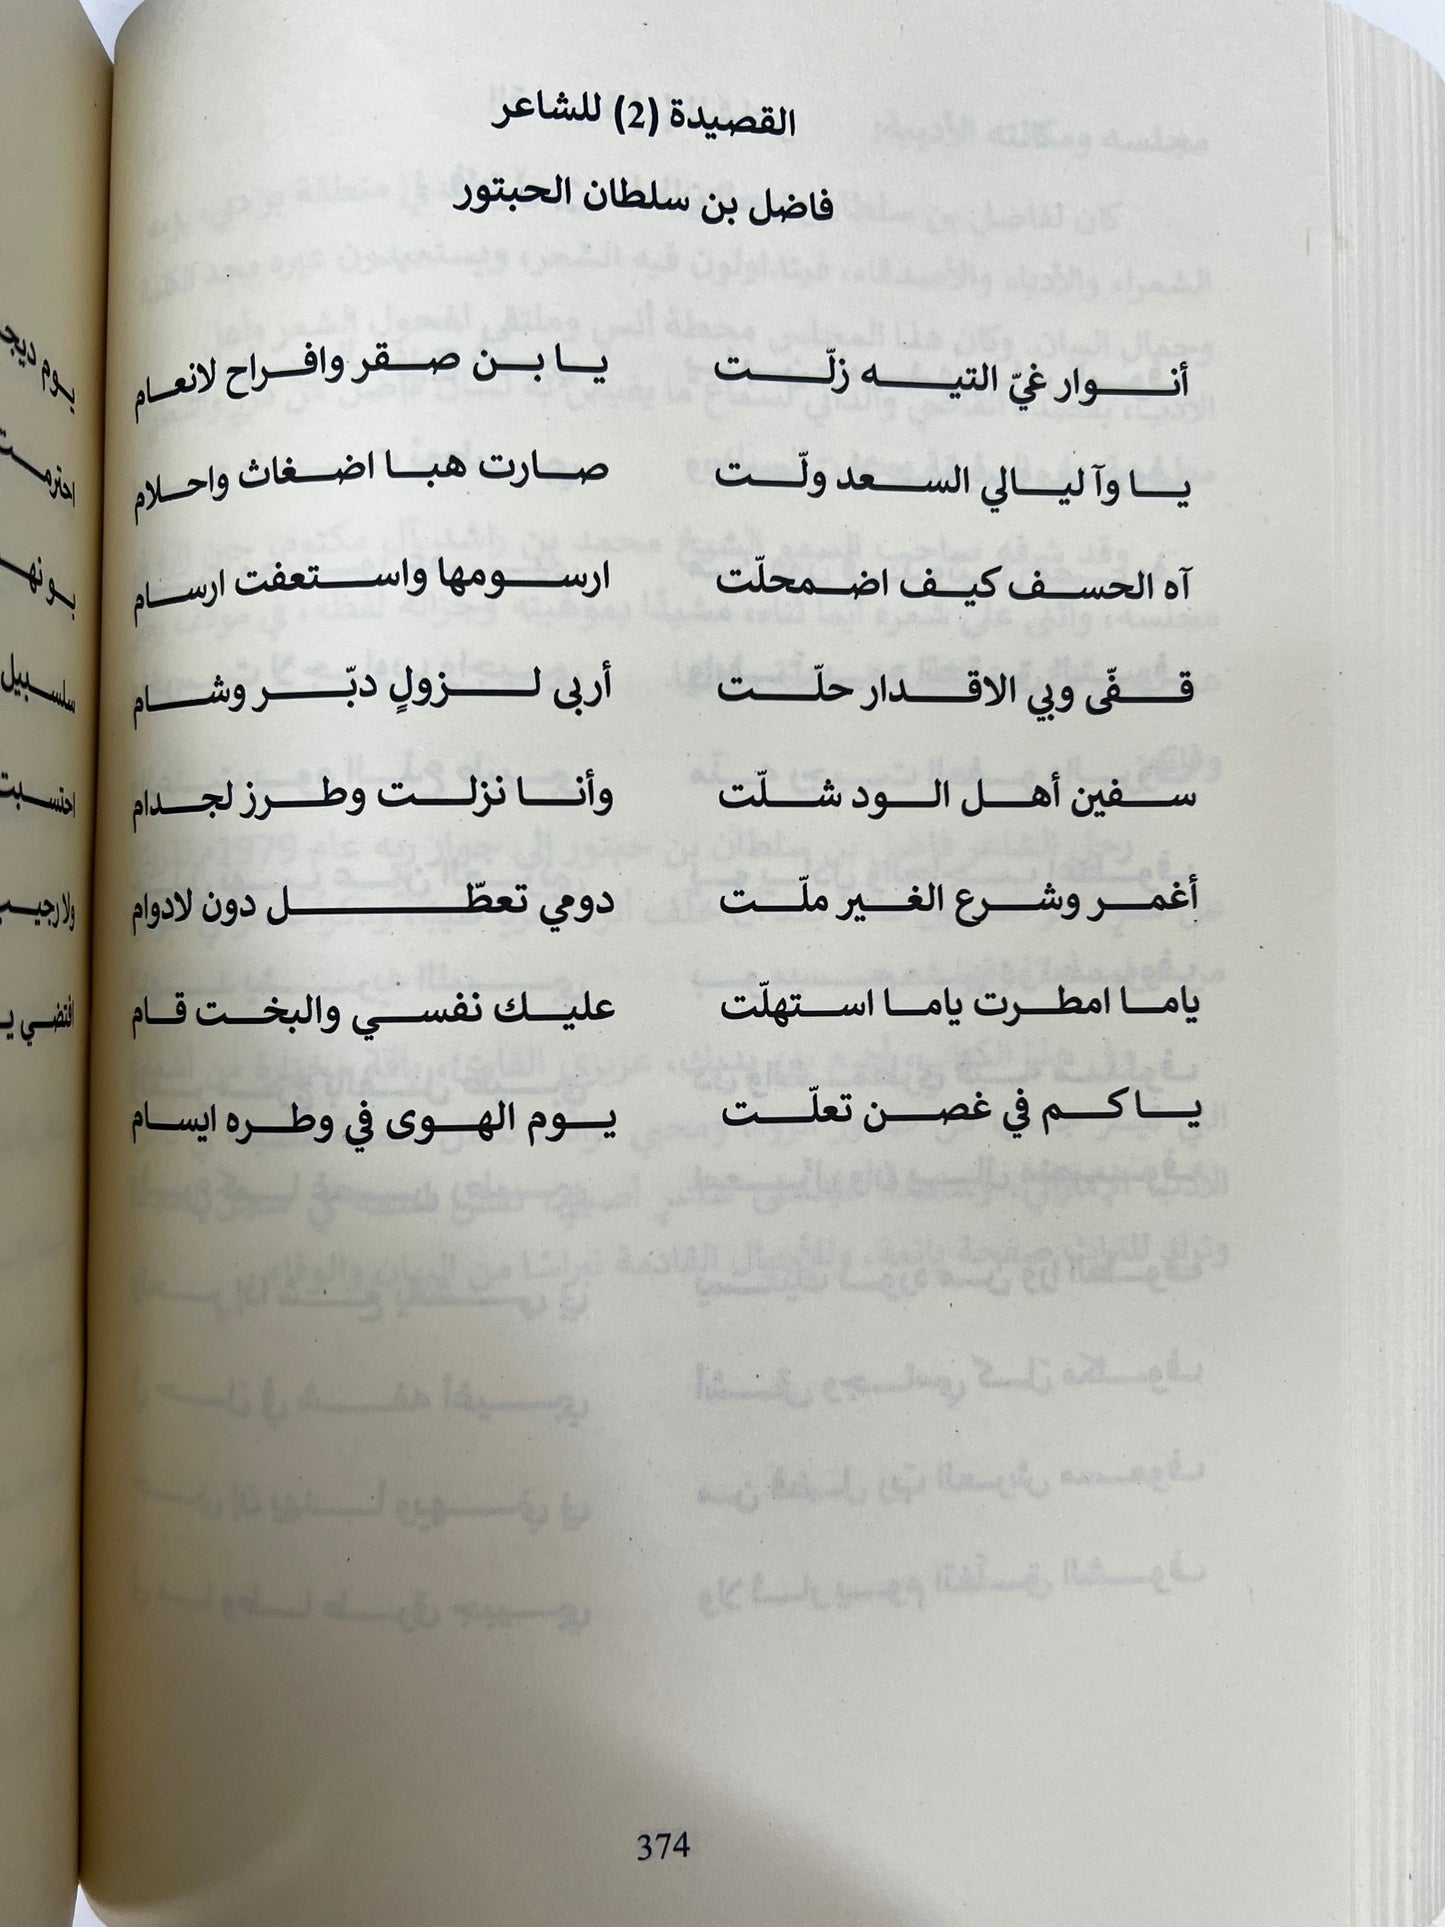 القصيدة (2) للشاعر
فاضل بن سلطان الحبتور
أنوار غيّ التيه زلّت يا بن صقر وافراح لانعام
يا وآ ليالي السعد ولّت صارت هبا اضغاث واحلام
آه الحسف كيف اضمحلّت ارسومها واستعفت ارسام
قفّى وبي الاقدار حلّت أربى لزولٍ دبّر وشام
سفين أهل الود شلّت وأنا نزلت وطرز لجدام
أغمر وشرع الغير ملّت دومي تعطّل دون لادوام
ياما امطرت ياما استهلّت عليك نفسي والبخت قام
يا كم في غصن تعلّت يوم الهوى في وطره ايسام
374
يوم
احترمت
سلسبيل
احتسبت